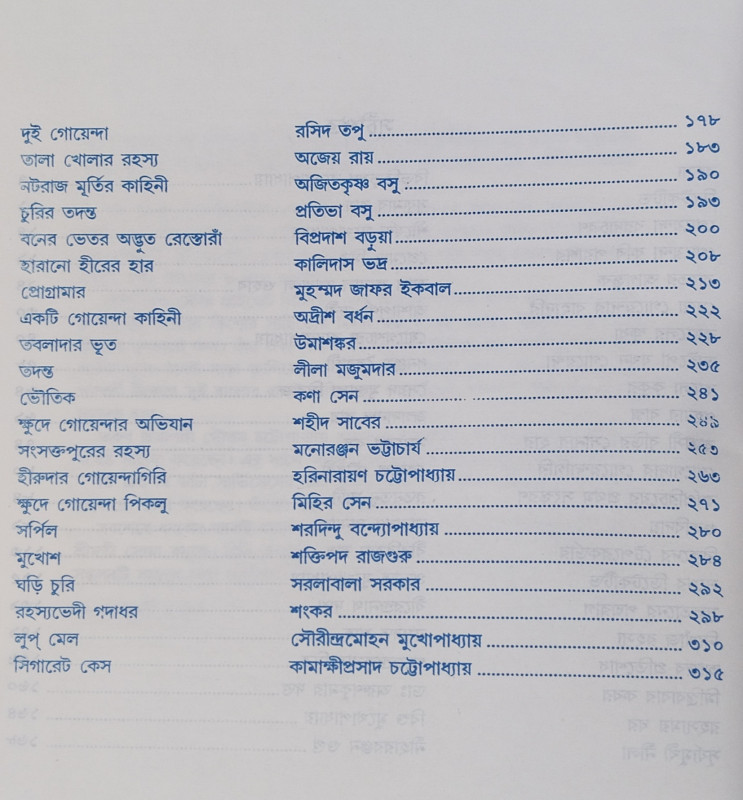 দুই গোয়েন্দা রসিদ তপু ........................................................ ১৭৮
তালা খোলার রহস্য অজেয় রায় ........................................................ ১৮৩
নটরাজ মূর্তির কাহিনী অজিতকৃষ্ণ বসু ........................................................ ১৯০
চুরির তদন্ত প্রতিভা বসু ........................................................ ১৯৩
বনের ভেতর অদ্ভুত রেস্তোরাঁ বিপ্রদাশ বড়ুয়া ........................................................ ২০০
হারানো হীরের হার কালিদাস ভদ্র ........................................................ ২০৮
প্রোগ্রামার মুহম্মদ জাফর ইকবাল ........................................................ ২১৩
একটি গোয়েন্দা কাহিনী অদ্রীশ বর্ধন ........................................................ ২২২
তবলাদার ভূত উমাশঙ্কর ........................................................ ২২৮
তদন্ত লীলা মজুমদার ........................................................ ২৩৫
ভৌতিক কণা সেন ........................................................ ২৪১
ক্ষুদে গোয়েন্দার অভিযান শহীদ সাবের ........................................................ ২৪৯
সংসক্তপুরের রহস্য মনোরঞ্জন ভট্টাচার্য ........................................................ ২৫৩
হীরুদার গোয়েন্দাগিরি হরিনারায়ণ চট্টোপাধ্যায় ........................................................ ২৬৩
ক্ষুদে গোয়েন্দা পিকলু মিহির সেন ........................................................ ২৭১
সর্পিল শরদিন্দু বন্দ্যোপাধ্যায় ........................................................ ২৮০
মুখোশ শক্তিপদ রাজগুরু ........................................................ ২৮৪
ঘড়ি চুরি সরলাবালা সরকার ........................................................ ২৯২
রহস্যভেদী গদাধর শংকর ........................................................ ২৯৮
লুপ্ মেল সৌরীন্দ্রমোহন মুখোপাধ্যায় ........................................................ ৩১০
সিগারেট কেস কামাক্ষীপ্রসাদ চট্টোপাধ্যায় ........................................................ ৩১৫